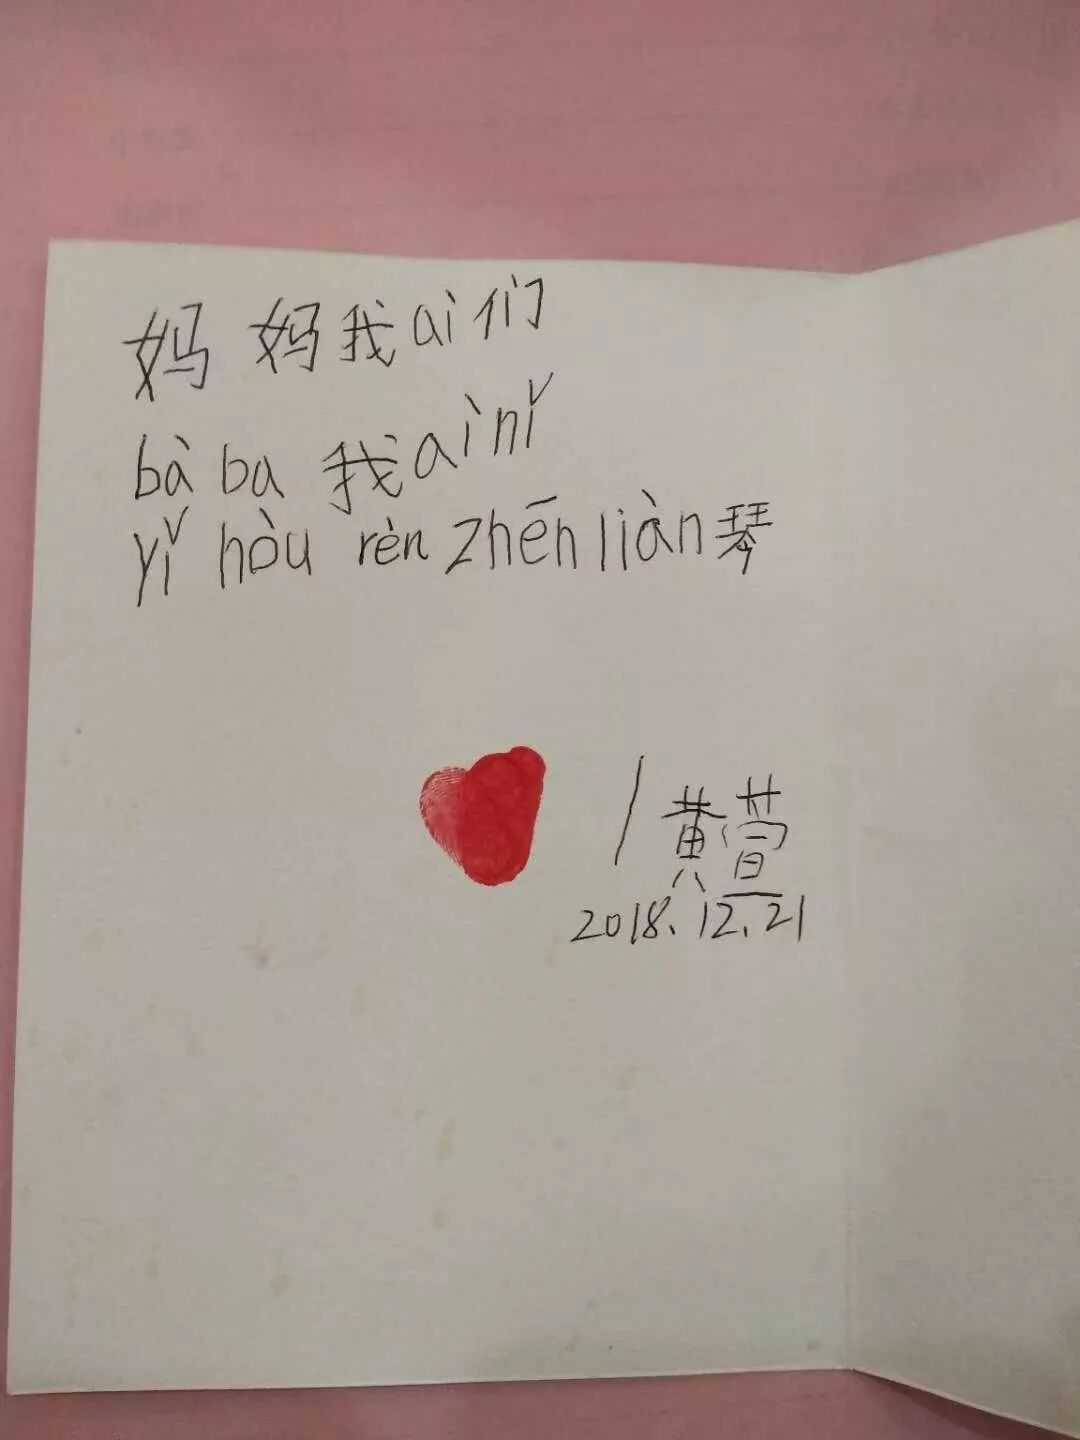 妈妈我ài们
bà ba 我ài nǐ
yǐ hòu rèn zhēn liàn琴
黄萱
2018.12.21